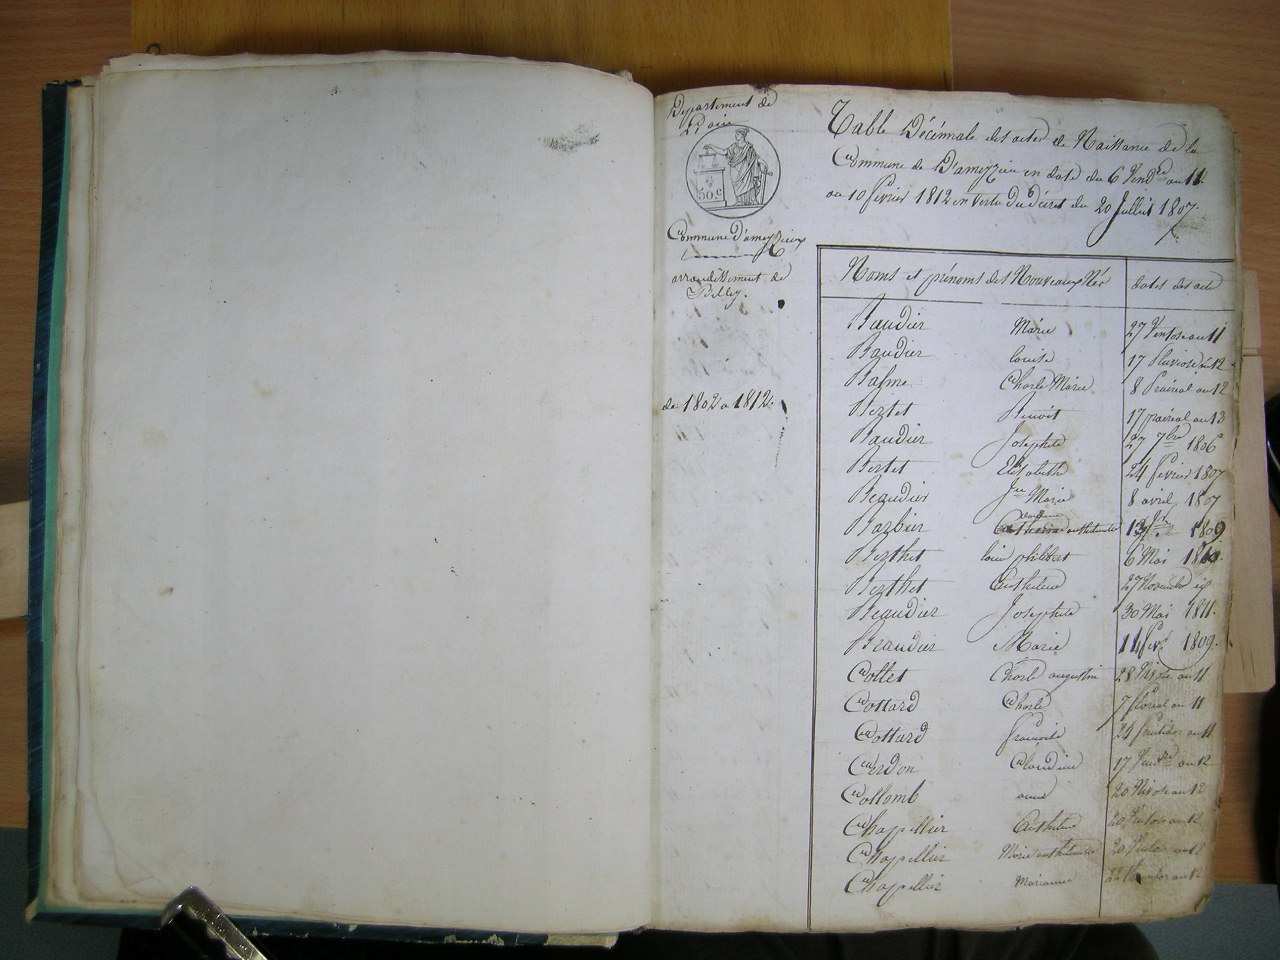 Département de
L'ain
50 c
Commune d'ameyzieux
arrondissement de
Belley.
de 1802 a 1812.
Table Décénnale des actes de Naissance de la
Commune de D'ameyzieu en date du 6 Vend.re an 11.
au 10 février 1812 en vertu du décret du 20 Juillet 1807.
Noms et prénoms des Nouveaux Nés dates des acte
Baudier Marie 27 Ventose an 11
Baudier louise 17 Pluviose an 12
Balme Charle Marie 8 Prairial an 12
Bertet Benoit 17 pairial an 13
Baudier Josephte 27 7bre 1806
Bertet Elisabeth 24 février 1807
Beaudier Jne Marie 8 avril 1807
Barbier anthelmette 1809
Berthet loui philibert 6 Mai 1810
Berthet Anthelme 27 Novembre
Beaudier Josephte 30 Mai 1811.
Beaudier Marie 11 fév. 1809.
Collet Charle augustin 28 Nivose an 11
Cottard Charle 7 floréal an 11
Cottard francoise an 11
Cerdon Claudine 17 Vend.re an 12
Collomb anne 20 Nivose an 12
Chapellier Anthelme 20 Ventose an 12
Chapellier Marie anthelmette 20 Ventose an 12
Chapellier Marianne an 12